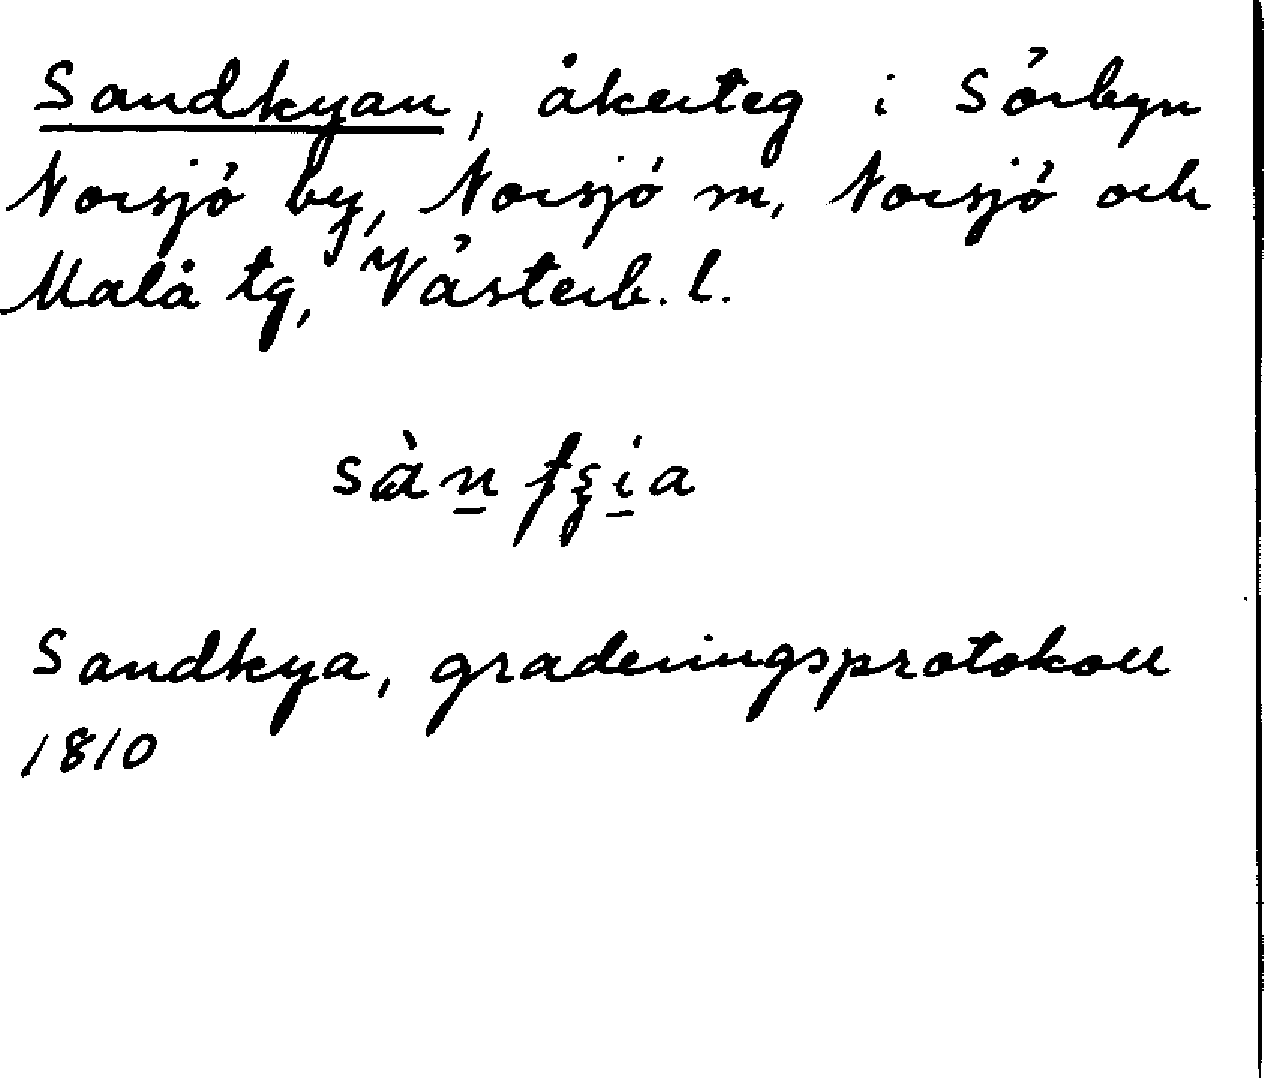 Sandkyan, åkerteg i Sörbyn
Norsjö by, Norsjö sn, Norsjö och
Malå tg, Västerb. l.
Sandkya, graderingsprotokoll
1810